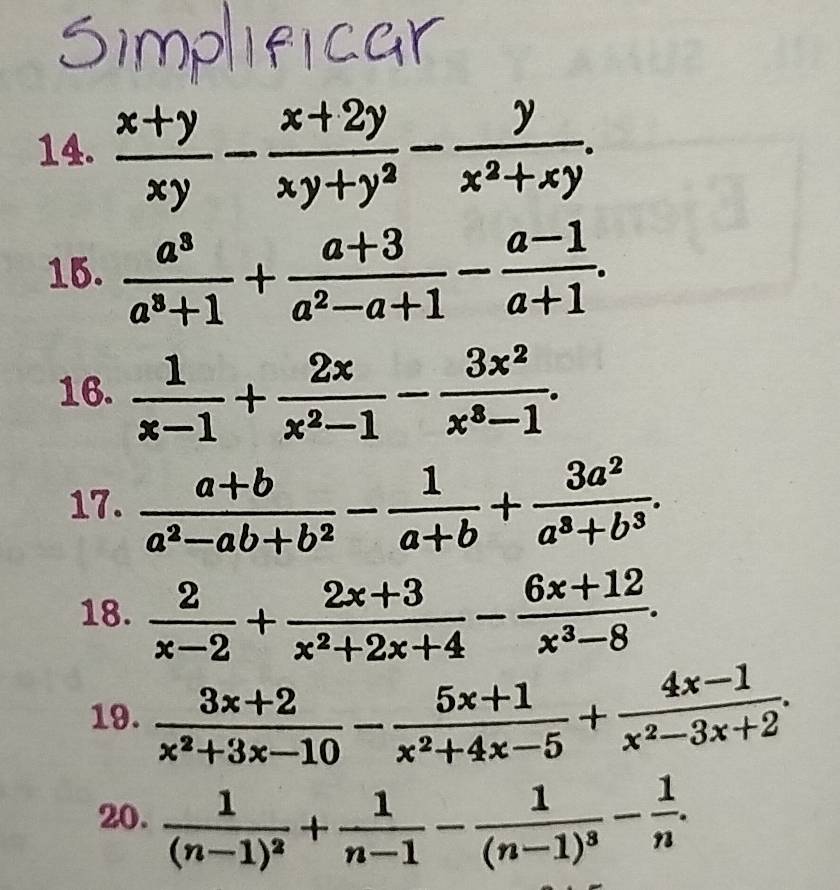 Simplificar
14. \frac{x+y}{xy} - \frac{x+2y}{xy+y²} - \frac{y}{x²+xy}.
15. \frac{a³}{a³+1} + \frac{a+3}{a²-a+1} - \frac{a-1}{a+1}.
16. \frac{1}{x-1} + \frac{2x}{x²-1} - \frac{3x²}{x³-1}.
17. \frac{a+b}{a²-ab+b²} - \frac{1}{a+b} + \frac{3a²}{a³+b³}.
18. \frac{2}{x-2} + \frac{2x+3}{x²+2x+4} - \frac{6x+12}{x³-8}.
19. \frac{3x+2}{x²+3x-10} - \frac{5x+1}{x²+4x-5} + \frac{4x-1}{x²-3x+2}.
20. \frac{1}{(n-1)²} + \frac{1}{n-1} - \frac{1}{(n-1)³} - \frac{1}{n}.